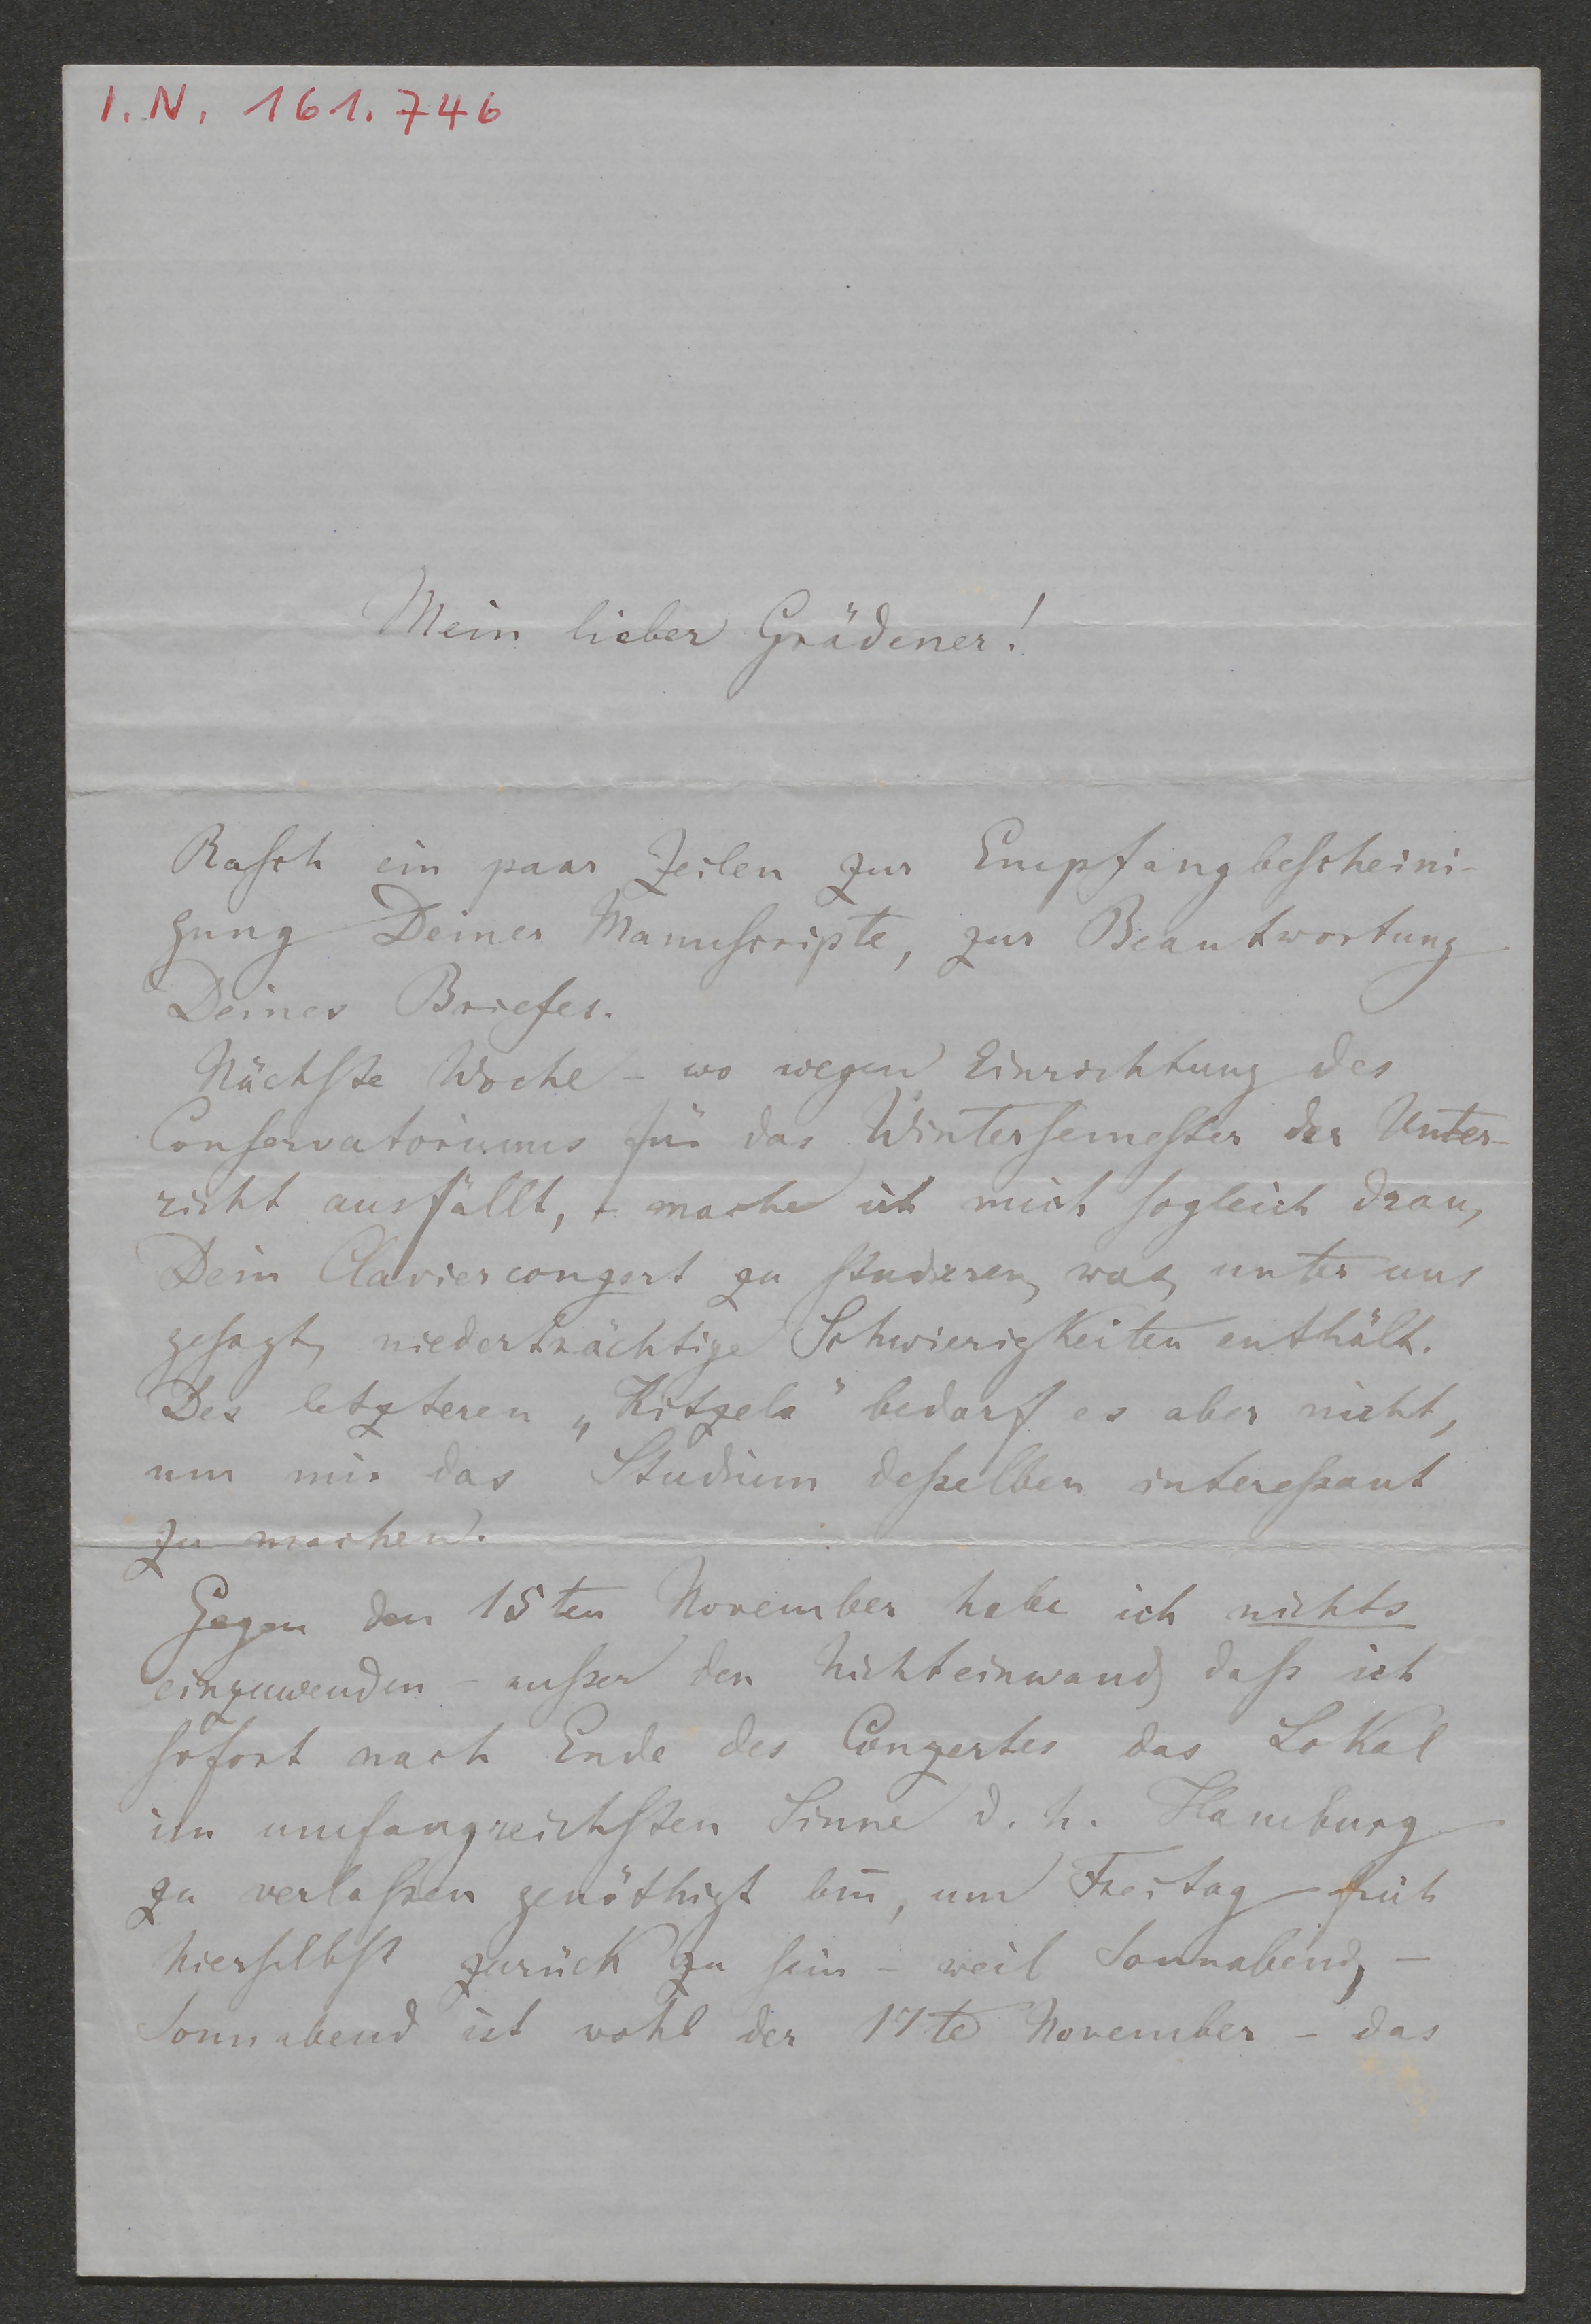 I.N. 161.746
Mein lieber Grädener!
Rasch ein paar Zeilen zur Empfangbescheini-
gung Deiner Manuscripte, zur Beantwortung
Deines Briefes.
Nächste Woche – wo wegen Einrichtung des
Conservatoriums für das Wintersemester der Unter-
richt ausfällt, – mache ich mich sogleich dran,
Dein Clavierconzert zu studieren, was, unter uns
gesagt, niederträchtige Schwierigkeiten enthält.
Des letzteren „Kitzels" bedarf es aber nicht,
um mir das Studium desselben interessant
zu machen.
Gegen den 15ten November habe ich nichts
einzuwenden – ausser den Nichteinwand, dass ich
sofort nach Ende des Conzertes das Lokal
im umfangreichsten Sinne d. h. Hamburg
zu verlassen genöthigt bin̄, um Freitag früh
hierselbst zurück zu sein – weil Sonnabend, –
Sonnabend ist wohl der 17te November – das